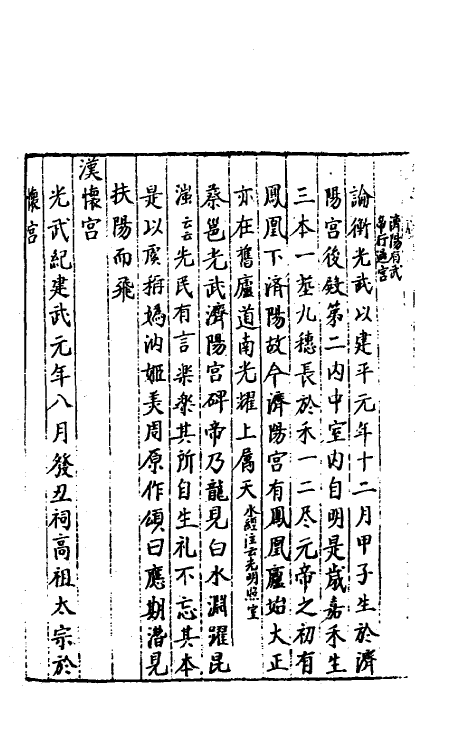 濟陽有武
帝行過宮
論衡光武以建平元年十二月甲子生於濟
陽宮後殿第二內中室內自明是歲嘉禾生
三本一莖九穗長於禾一二尺元帝之初有
鳳凰下濟陽故今濟陽宮有鳳凰廬始大正
亦在舊廬道南光耀上属天水經注云光明照室
蔡邕光武濟陽宮碑帝乃龍見白水淵躍昆
滍云云先民有言樂樂其所自生礼不忘其本
是以虞稱媯汭姬美周原作頌曰應期潛見
扶陽而飛
漢懷宮
光武紀建武元年八月癸丑祠高祖太宗於
懷宮